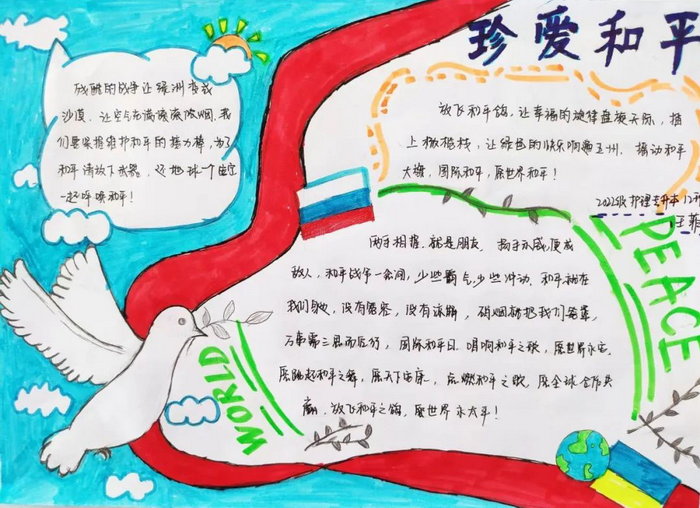 珍爱和平
残酷的战争让绿洲变成
沙漠，让空气充满滚滚浓烟，我
们要紧握维护和平的接力棒，为了
和平请放下武器，还地球一个
一起呼唤和平！
放飞和平鸽，让幸福的旋律盘旋天际，插
上橄榄枝，让绿色的快乐响遍五州，摇动和平
大旗，国际和平，愿世界和平！
2022级护理专升本12班
王菲
两手相握，就是朋友，扬手示威，便成
敌人，和平战争一念间，少些霸气，少些冲动，和平就在
我们身边，没有 没有 硝烟
万事需三思而后行，国际和平日，唱响和平之歌，愿世界永宁，
愿 起和平之 愿天下安康， 燃和平之 愿全球合作共
赢，放飞和平之鸽，愿世界永太平！
WORLD
PEACE